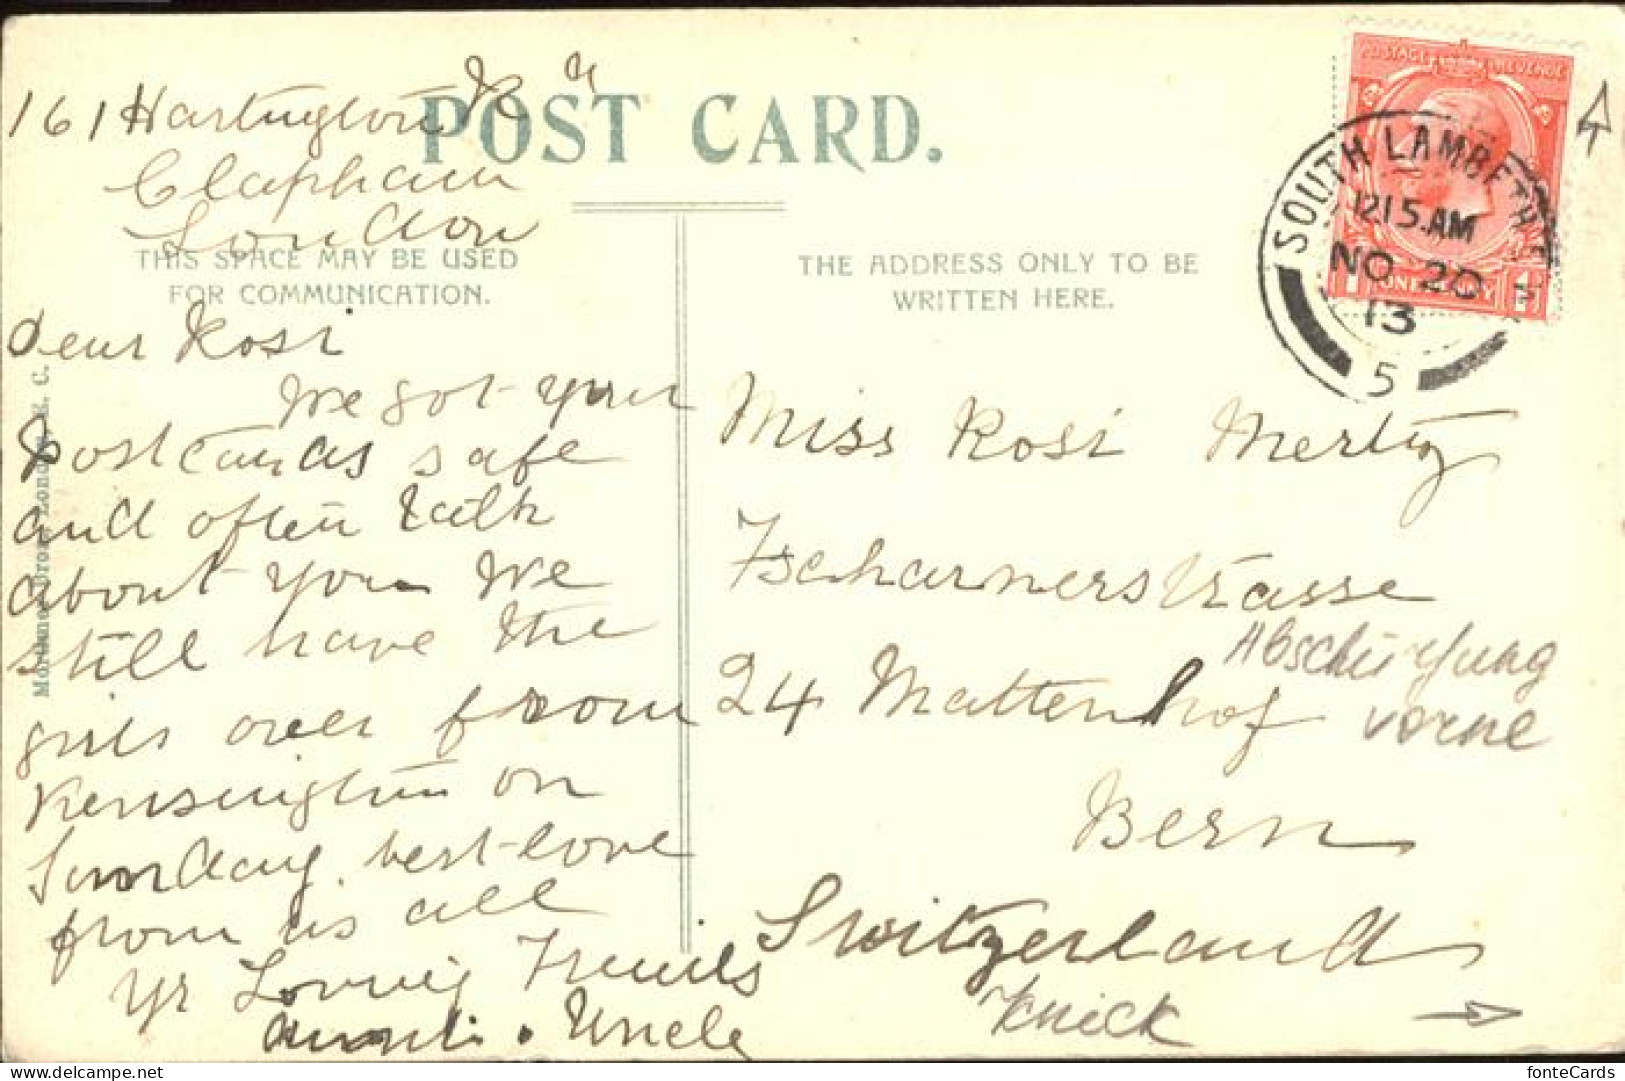 161 Hartington Rd
Clapham
London
POST CARD.
THIS SPACE MAY BE USED
FOR COMMUNICATION.
Dear Rosi
We got your
Postcards safe
and often talk
about you We
still have the
girls over from
Kensington on
Sunday. best love
from us all
yr Loving Friends
Uncle
THE ADDRESS ONLY TO BE
WRITTEN HERE.
SOUTH LAMBETH
12.15.AM
NO 20
13
5
POSTAGE REVENUE
1 ONE PENNY 1
Miss Rosi Mertz
Tscharnerstrasse
24 Mattenhof
Bern
Switzerland
Abschürfung
vorne
Knick
London, E. C.
fonteCards